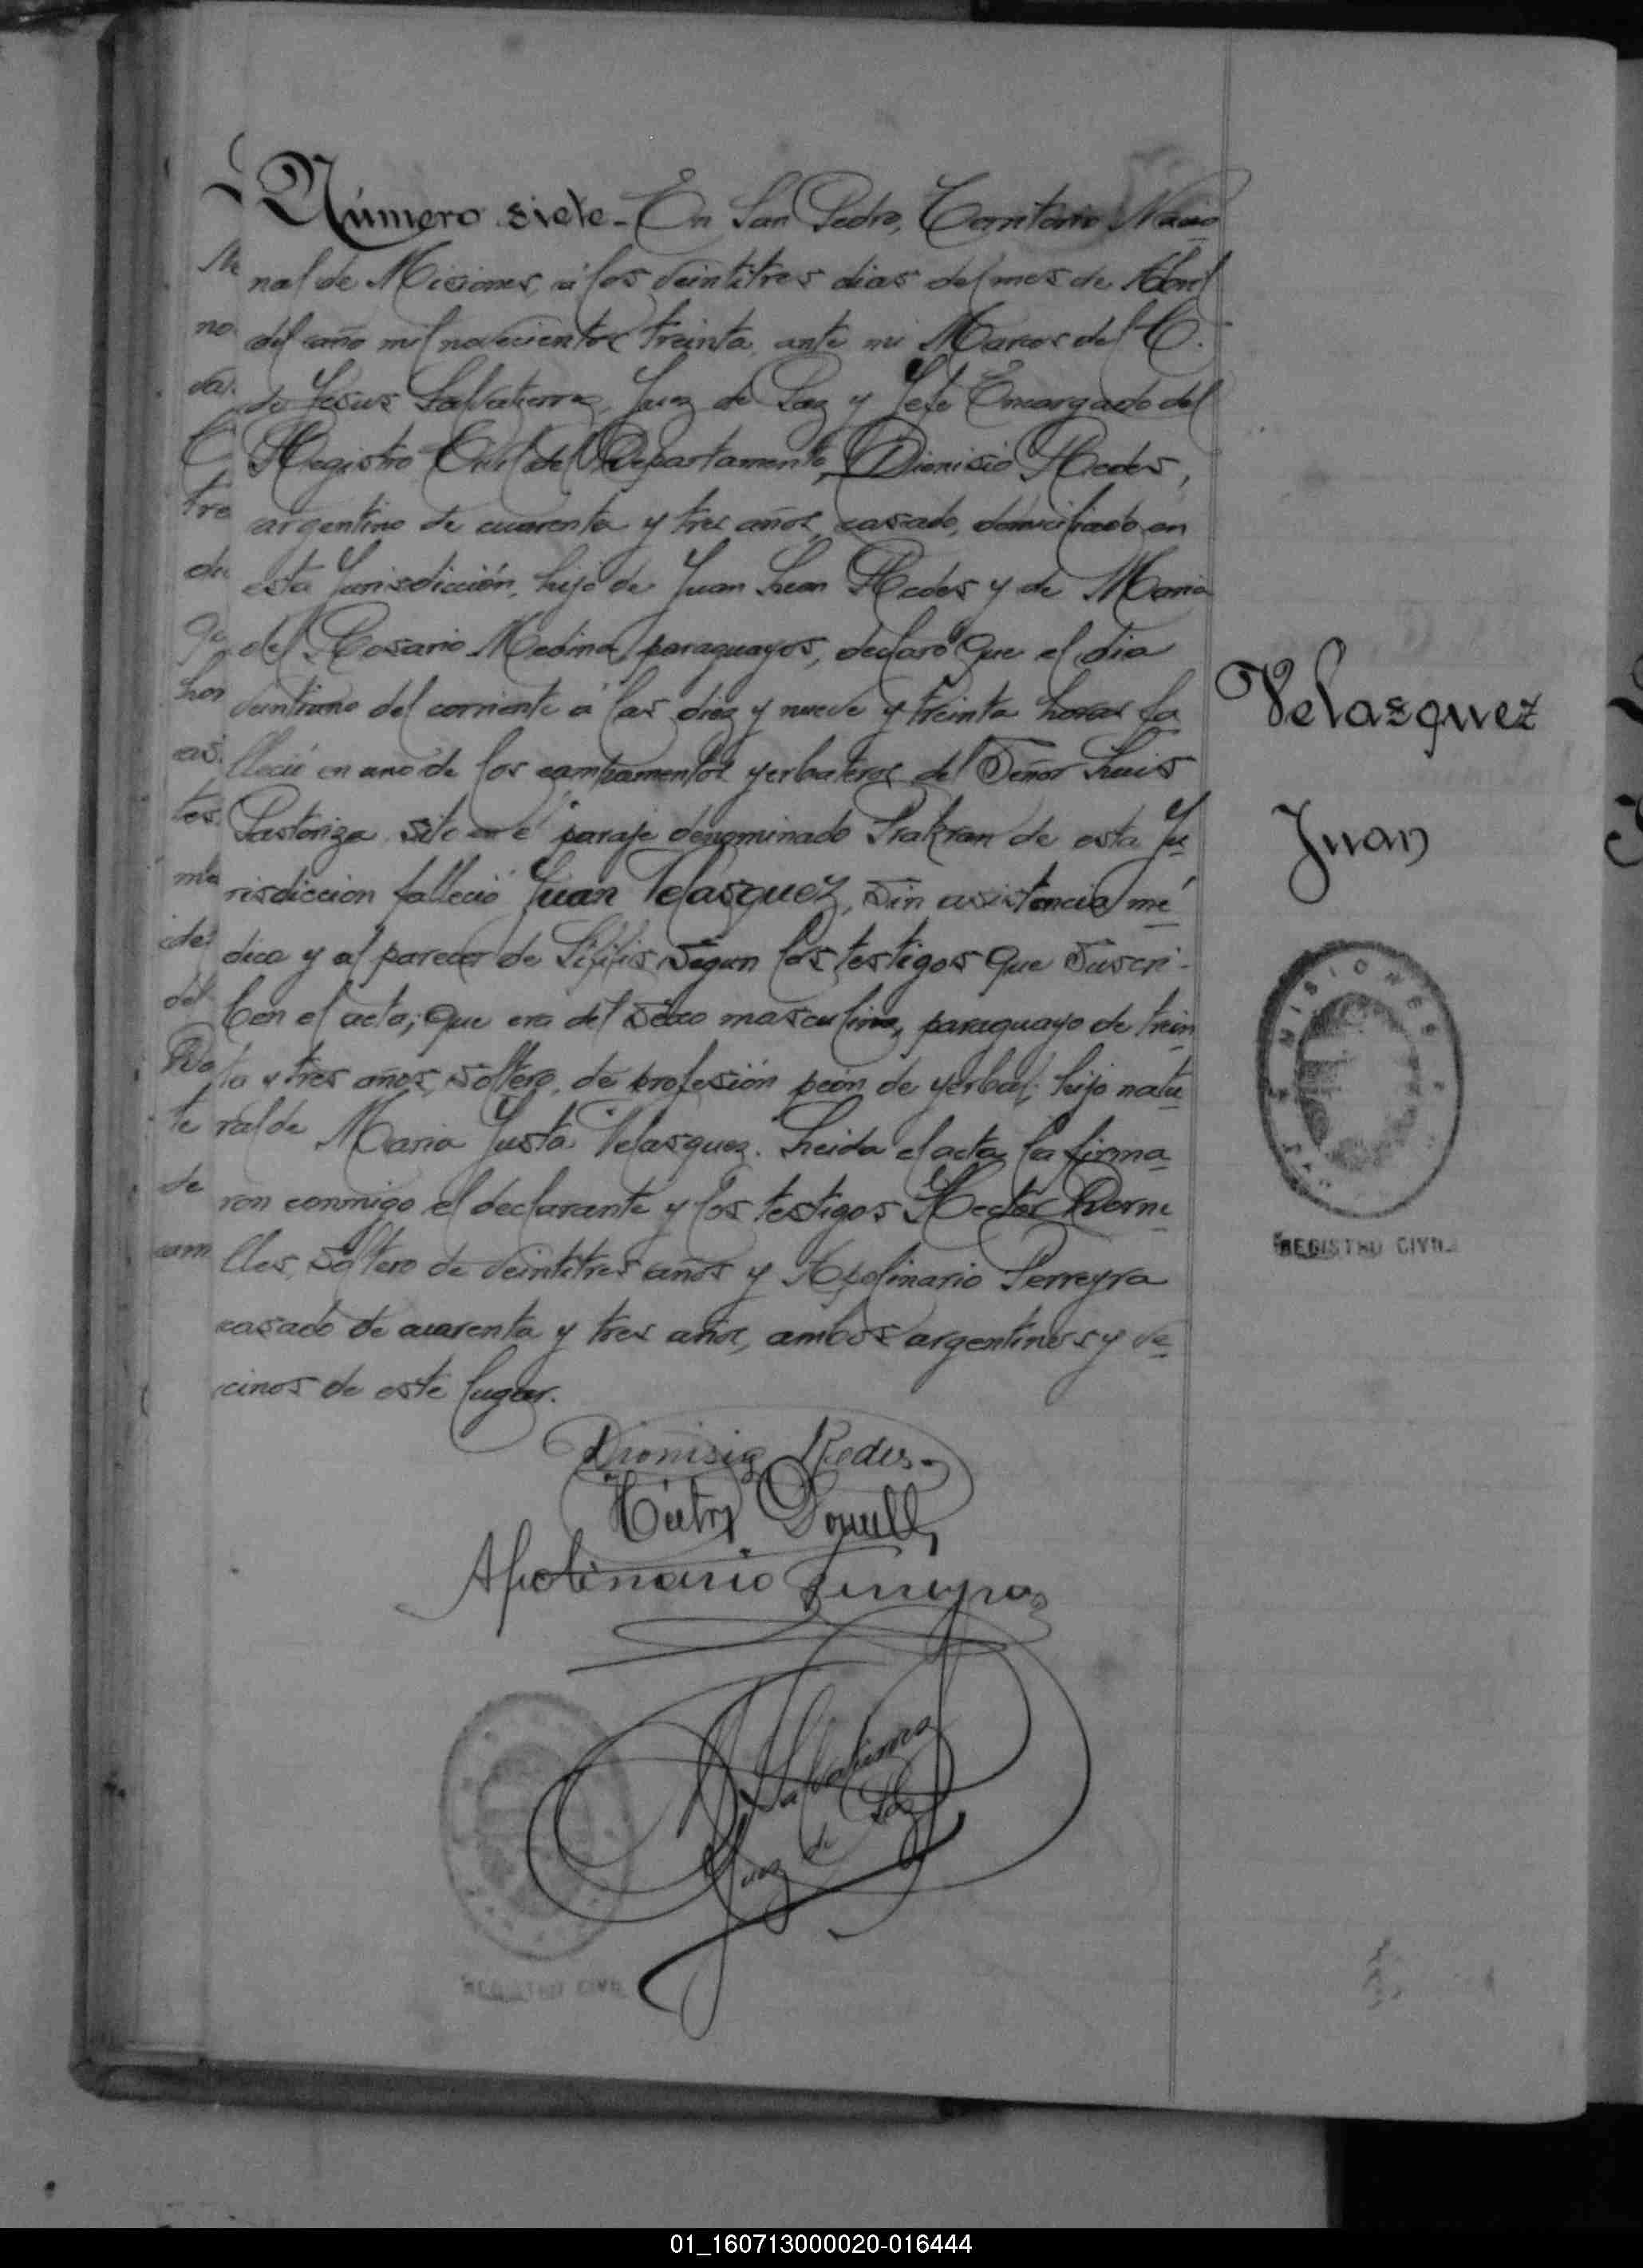 Número siete - En San Pedro, Territorio Nacio
nal de Misiones, á los veintitres dias del mes de Abril
del año mil novecientos treinta, ante mi Marcos del C.
de Jesus Salvatierra, Juez de Paz y Jefe Encargado del
Registro Civil del Departamento, Dionisio Redes,
argentino de cuarenta y tres años, casado, domiciliado en
esta Jurisdicción, hijo de Juan Redes y de Maria
del Rosario Medina, paraguayos, declaró que el dia
veintiuno del corriente á las diez y nueve y treinta horas fa
lleció en uno de los campamentos yerbateros del Señor Luis
Pastoriza sito en el paraje denominado de esta Ju
risdiccion falleció Juan Velasquez, sin asistencia mé
dica y al parecer de Sifilis segun los testigos que suscri-
ben el acta; que era del sexo masculino, paraguayo de trein
ta y tres años, soltero, de profesión peón de yerbal, hijo natu
ral de Maria Justa Velasquez. Leida el acta la firma
ron conmigo el declarante y los testigos Hector Dorni
lles, soltero de veintitres años y Apolinario Ferreyra
casado de cuarenta y tres años, ambos argentinos y ve
cinos de este lugar.
Velazquez
Juan
MISIONES
REGISTRO CIVIL
Dionisio Redes
Apolinario Ferreyra
Salvatierra
Juez de Paz
REGISTRO CIVIL
01_160713000020-016444